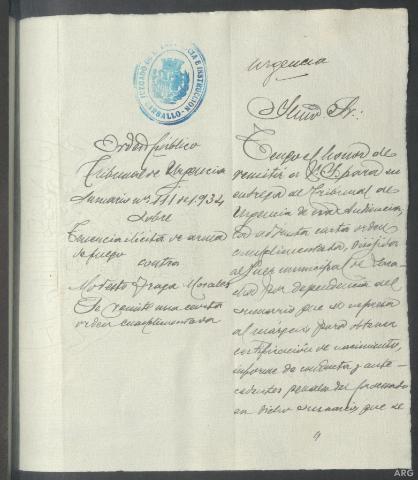 JUZGADO DE 1ª INSTANCIA E INSTRUCCION
CARBALLO
Orden público
Tribunal de Urgencia
Sumario nº 111 de 1.934
sobre
Tenencia ilícita de arma
de fuego
contra
Modesto Fraga Morales
Se remite una carta
orden cumplimentada
Urgencia
Ilmo Sr.:
Tengo el honor de
remitir a V.I. para su
entrega al Tribunal de
Urgencia de esa Audiencia,
la adjunta carta orden
cumplimentada, dirigida
al Juez municipal de
por dependencia del
sumario que se expresa
al margen, para obtener
certificación de nacimiento,
informe de conducta y ante-
cedentes penales del procesado
en dicho sumario, que se
ARG